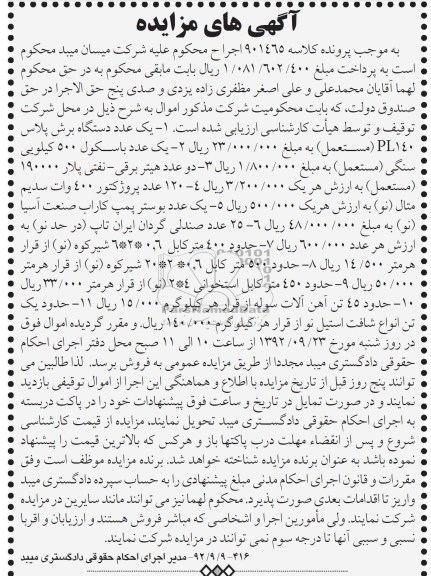 آگهی های مزایده
به موجب پرونده کلاسه ۹۰۱۴۶۵ اجرا ح محکوم علیه شرکت میسان میبد محکوم
است به پرداخت مبلغ ۱/۰۸۱/۶۰۲/۴۰۰ ریال بابت مابقی محکوم به در حق محکوم
لهما آقایان محمدعلی و علی اصغر مظفری زاده یزدی و صدی پنج حق الاجرا در حق
صندوق دولت، که بابت محکومیت شرکت مذکور اموال به شرح ذیل در محل شرکت
توقیف و توسط هیأت کارشناسی ارزیابی شده است. ۱- یک عدد دستگاه برش پلاس
PL۱۴۰ (مستعمل) به مبلغ ۲۳/۰۰۰/۰۰۰ ریال ۲- یک عدد باسکول ۵۰۰ کیلویی
سنگی (مستعمل) به مبلغ ۱/۸۰۰/۰۰۰ ریال ۳- دو عدد هیتر برقی- نفتی پلار ۱۹۰۰۰۰
(مستعمل) به ارزش هر یک ۳/۲۰۰/۰۰۰ ریال ۴- ۱۲۰ عدد پروژکتور ۴۰۰ وات سدیم
متال (نو) به ارزش هر یک ۵۰۰/۰۰۰ ریال ۵- یک عدد بوستر پمپ کاراب صنعت آسیا
(نو) به مبلغ ۴۸/۰۰۰/۰۰۰ ریال ۶- ۲۵ عدد صندلی گردان ایران تاپ (در حد نو) به
ارزش هر عدد ۶۰۰/۰۰۰ ریال ۷- حدود ۴۰۰ متر کابل ۰،۶*۲*۶ شیرکوه (نو) از قرار
هر متر ۱۴/۵۰۰ ریال ۸- حدود ۵۰۰ متر کابل ۰،۶*۲*۲۰ شیرکوه (نو) از قرار هر متر
۵۰/۰۰۰ ریال ۹- حدود ۴۵۰ متر کابل استخوانی ۴*۲ (نو) از قرار هر متر ۳۳/۰۰۰ ریال
۱۰- حدود ۴۵ تن آهن آلات سوله از قرار هر کیلوگرم ۱۵/۰۰۰ ریال ۱۱- حدود یک
تن انواع شافت استیل نو از قرار هر کیلوگرم ۱۴۰/۰۰۰ ریال. و مقرر گردیده اموال فوق
در روز شنبه مورخ ۱۳۹۲/۰۹/۲۳ از ساعت ۱۰ الی ۱۱ صبح محل دفتر اجرای احکام
حقوقی دادگستری میبد مجددا از طریق مزایده عمومی به فروش برسد. لذا طالبین می
توانند پنج روز قبل از تاریخ مزایده با اطلاع و هماهنگی این اجرا از اموال توقیفی بازدید
نمایند و در صورت تمایل در تاریخ و ساعت فوق پیشنهادات خود را در پاکت دربسته
به اجرای احکام حقوقی دادگستری میبد تحویل نمایند، مزایده از قیمت کارشناسی
شروع و پس از انقضاء مهلت درب پاکتها باز و هرکس که بالاترین قیمت را پیشنهاد
نموده باشد به عنوان برنده مزایده شناخته خواهد شد. برنده مزایده موظف است وفق
مقررات و قانون اجرای احکام مدنی مبلغ پیشنهادی را به حساب سپرده دادگستری میبد
واریز تا اقدامات بعدی صورت پذیرد. محکوم لهما نیز می توانند مانند سایرین در مزایده
شرکت نمایند. ولی مأمورین اجرا و اشخاصی که مباشر فروش هستند و ارزیابان و اقربا
نسبی و سببی آنها تا درجه سوم نمی توانند در مزایده شرکت نمایند.
۴۱۶-۹۲/۹/۹- مدیر اجرای احکام حقوقی دادگستری میبد